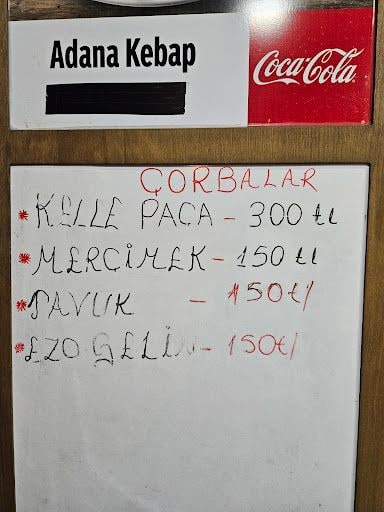 Adana Kebap
Coca-Cola
ÇORBALAR
* KELLE PAÇA - 300 tl
* MERCİMEK - 150 tl
* TAVUK - 150 tl
* EZO GELİN - 150 tl